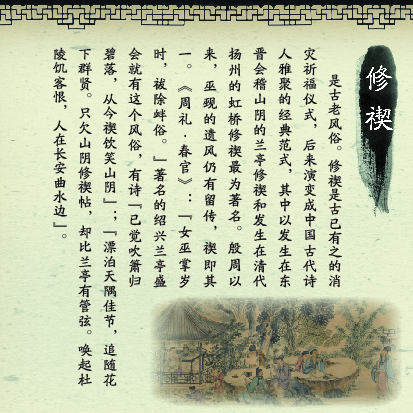 修禊
是古老风俗。修禊是古已有之的消
灾祈福仪式，后来演变成中国古代诗
人雅聚的经典范式，其中以发生在东
晋会稽山阴的兰亭修禊和发生在清代
扬州的虹桥修禊最为著名。殷周以
来，巫觋的遗风仍有留传，禊即其
一。《周礼·春官》：『女巫掌岁
时，祓除衅俗。』著名的绍兴兰亭盛
会就有这个风俗，有诗『已觉吹箫归
碧落，从今禊饮笑山阴』；『漂泊天隅佳节，追随花
下群贤。只欠山阴修禊帖，却比兰亭有管弦。唤起杜
陵饥客恨，人在长安曲水边』。